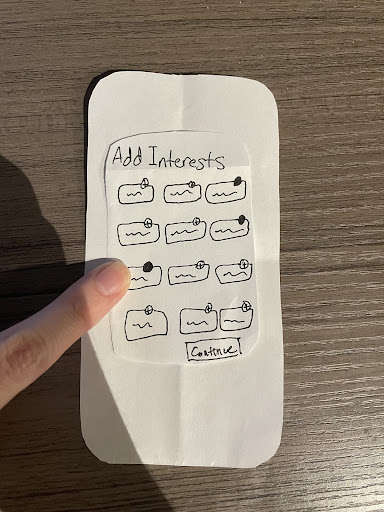 Add Interests
Continue